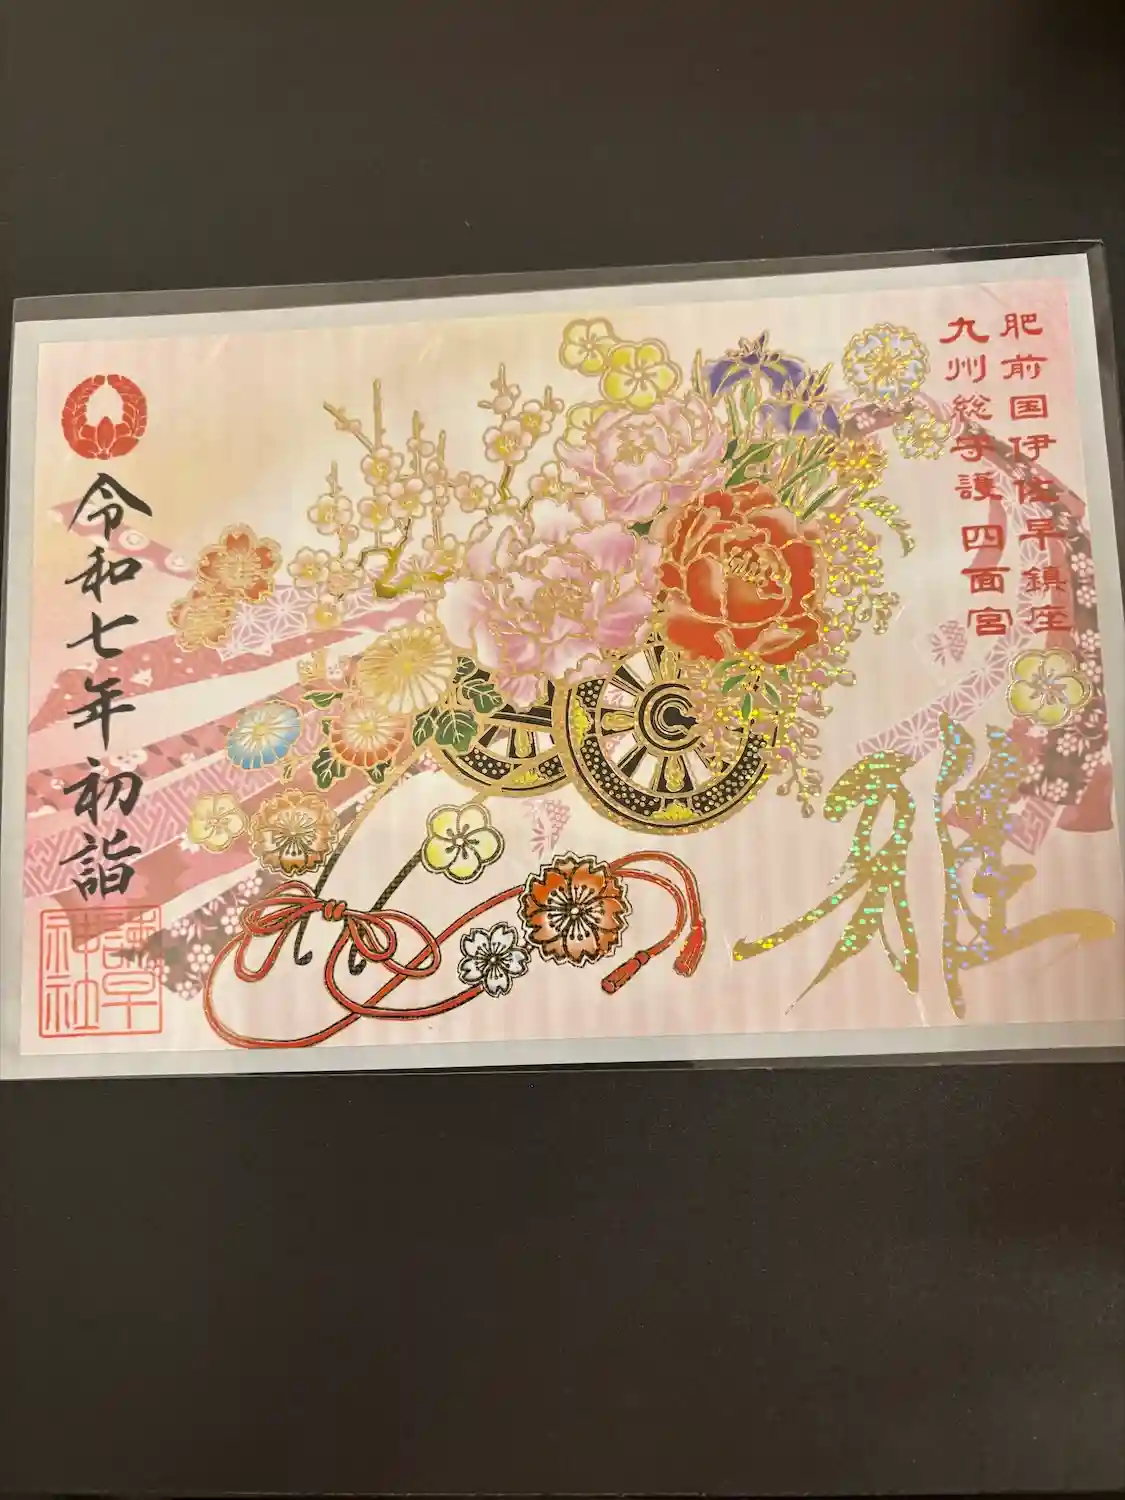 肥前国伊佐早鎮座
九州総守護 四面宮
雅
令和七年初詣
諫早
神社